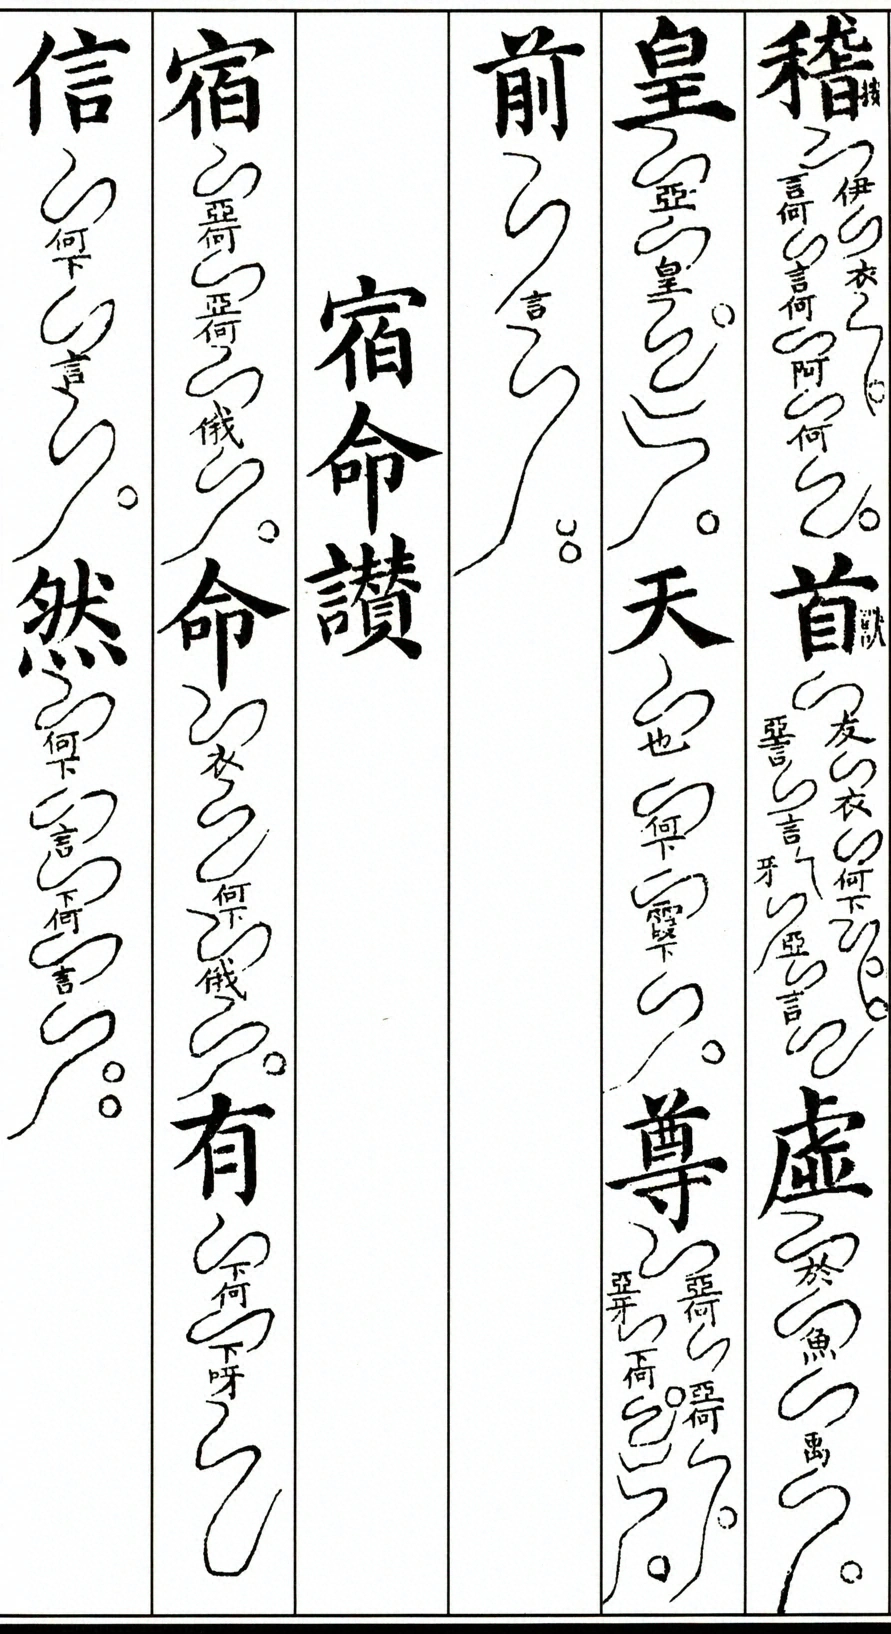 稽伊衣言何言何阿何首獸友衣何下亞言言牙亞言虛於魚禹
皇亞皇天也何下霞下尊亞何亞何亞牙下何
前言
宿命讃
宿亞何亞何俄命衣何下俄有下何下呀
信何下言然何下言下何言